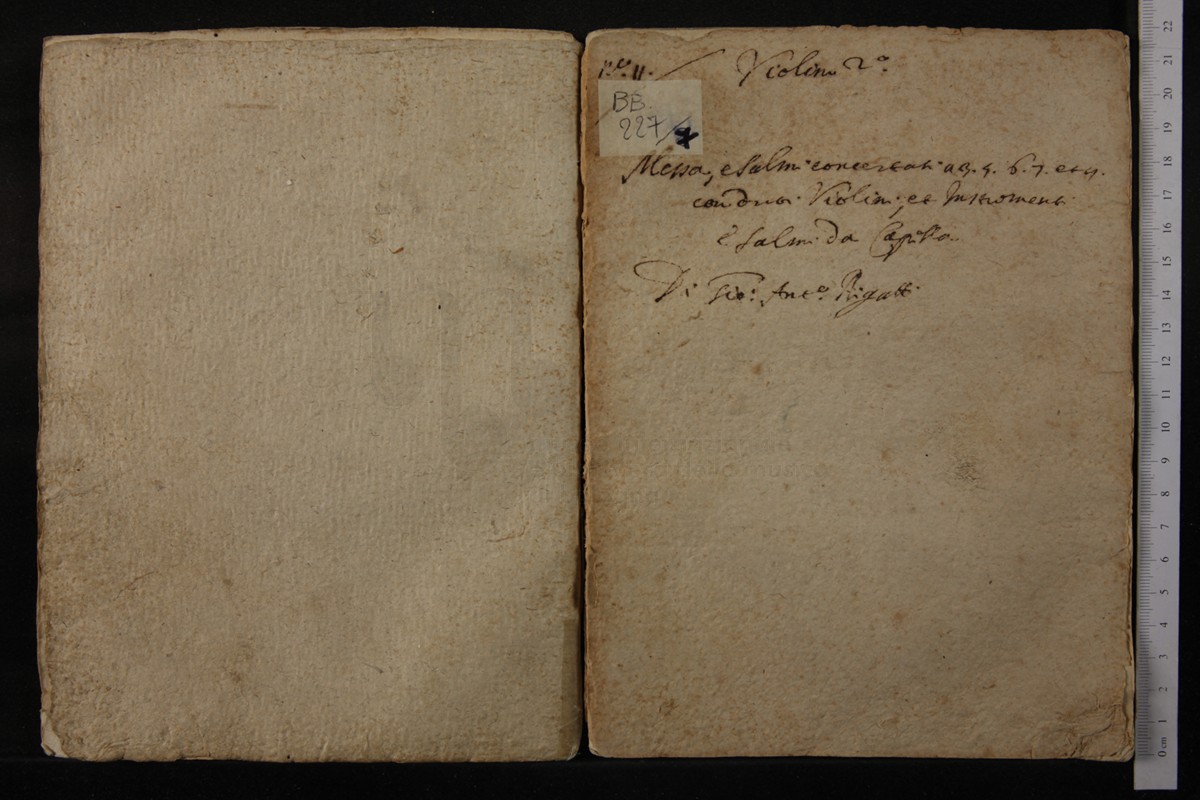 N.o 11.
Violino 2o
BB.
227
Messa, e Salmi concertati a 3. 5. 6. 7. et 9.
con due Violini, et Instromenti
e Salmi da Capella.
Di Gio: Anto. Rigatti
0 cm 1 2 3 4 5 6 7 8 9 10 11 12 13 14 15 16 17 18 19 20 21 22